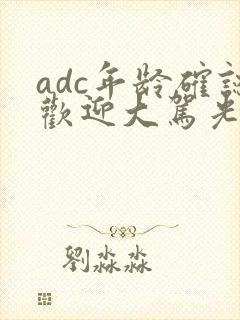 adc年龄確認
歡迎大駕光
劉淼淼